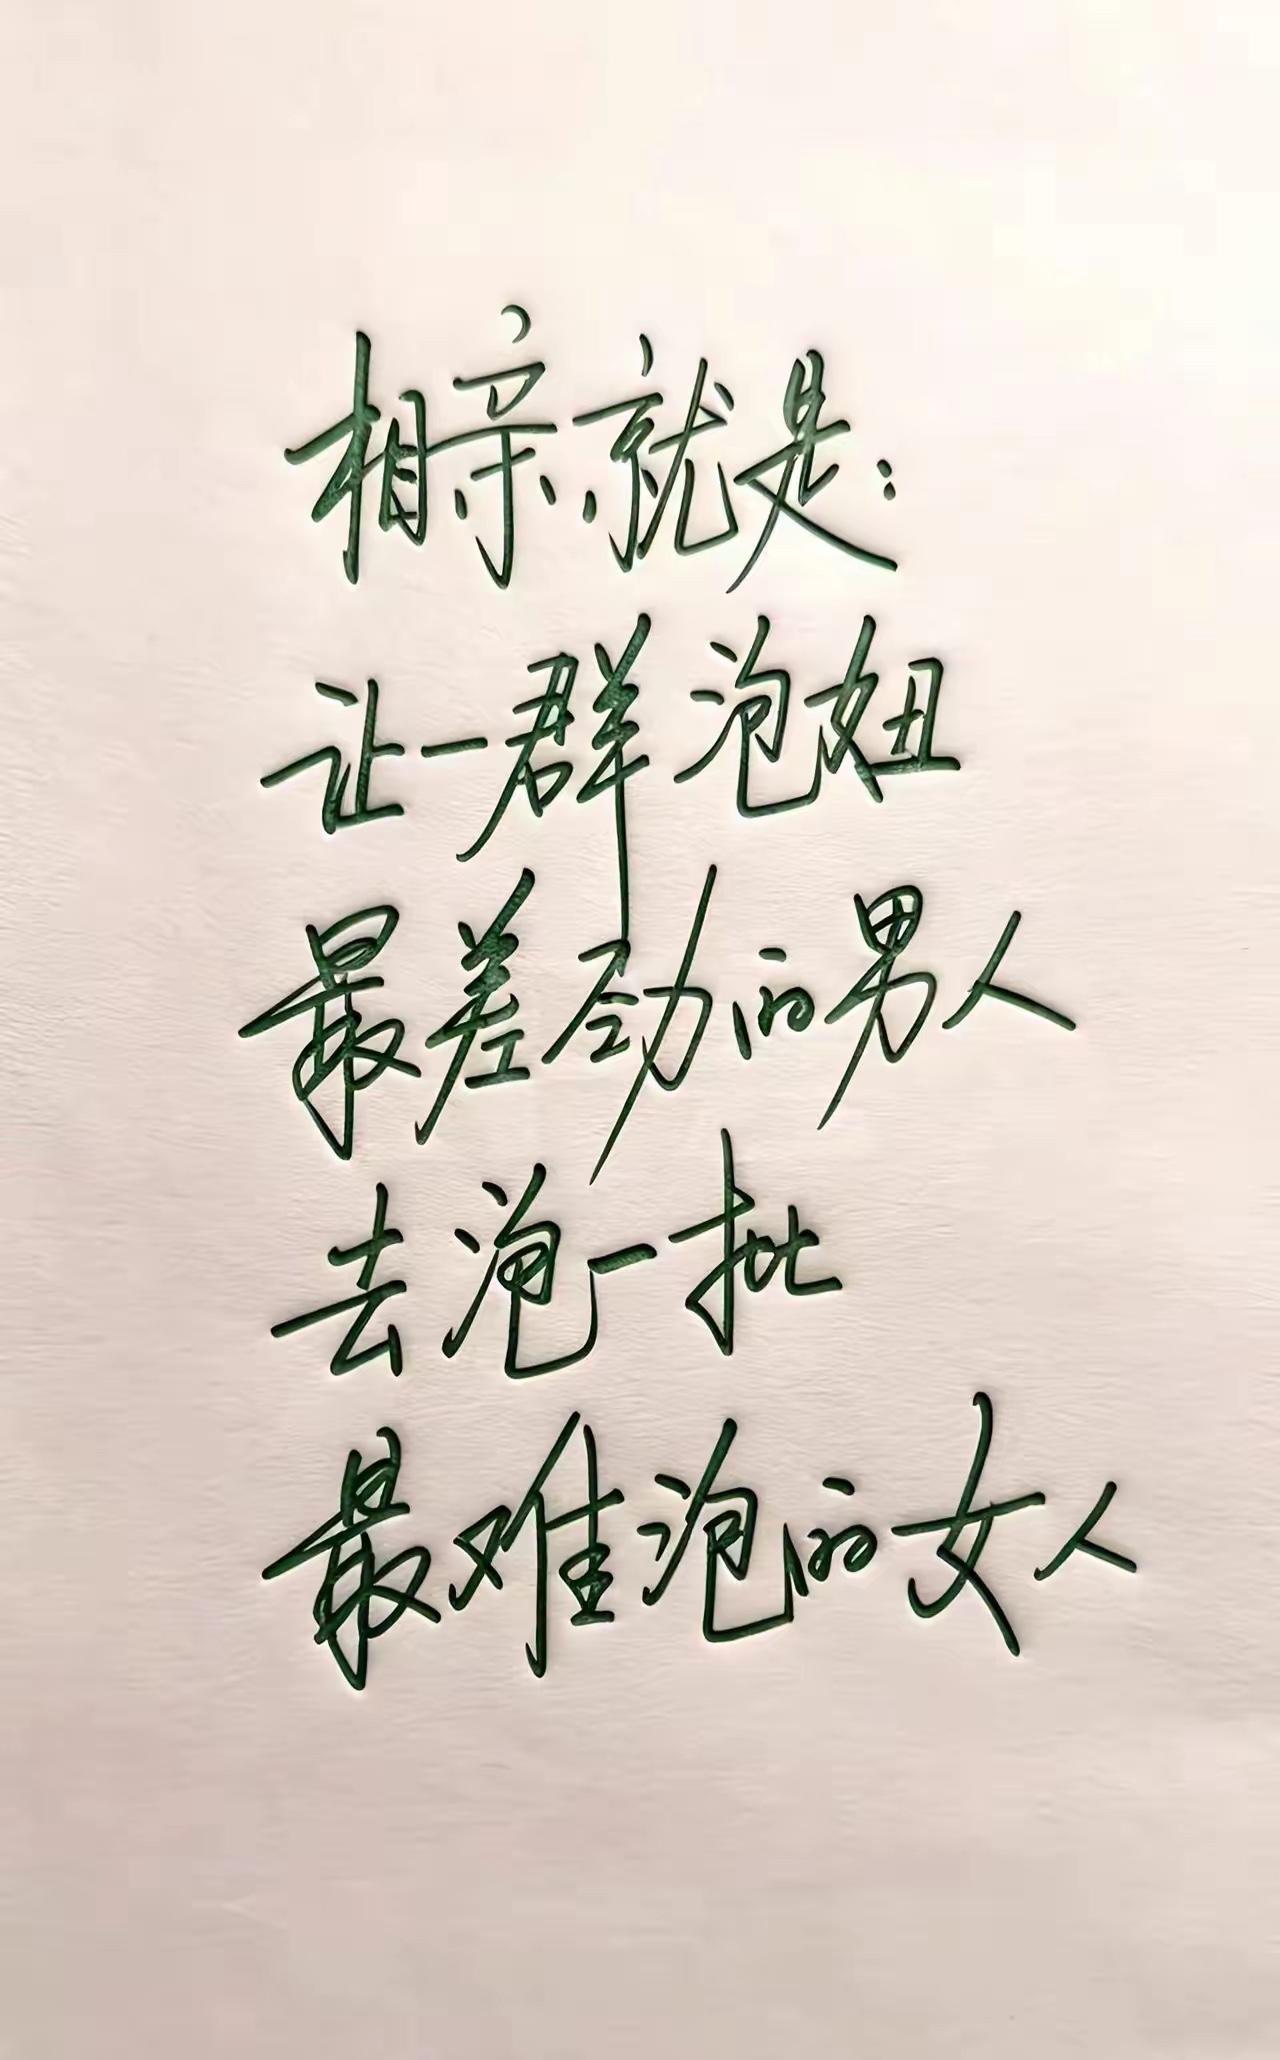 相亲就是:
让一群泡妞
最差劲的男人
去泡一批
最难泡的女人